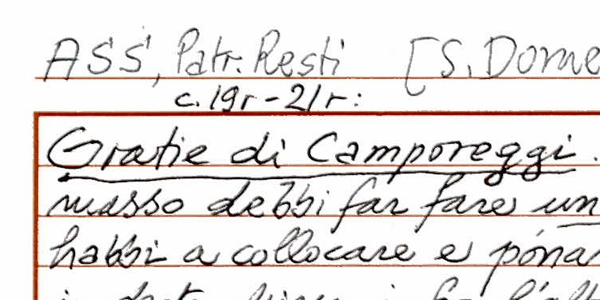 ASS, Patr. Resti [S. Dome
c. 19r-21r:
Gratie di Camporeggi.
masso debbi far fare un
habbi a collocare e pona